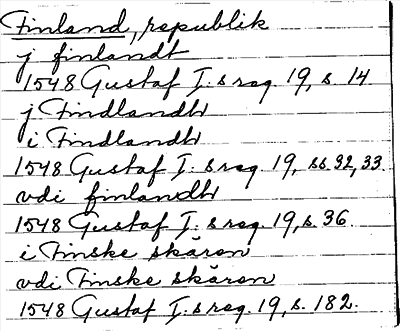 Finland, republik
j finlandt
1548 Gustaf I:s reg. 19, s. 14
j Findlandh
i Findlandh
1548 Gustaf I:s reg. 19, ss. 32, 33.
vdi finlandh
1548 Gustaf I:s reg. 19, s. 36.
i Finske skären
vdi Finske skären
1548 Gustaf I:s reg. 19, s. 182.